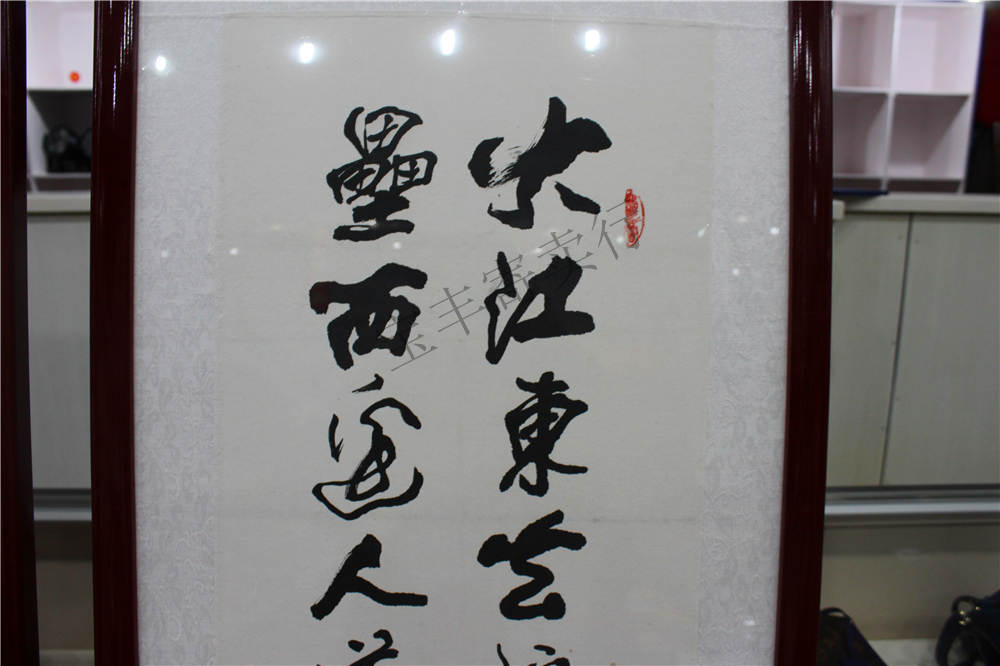 大江東去
壘西邊人
宝丰寄卖行